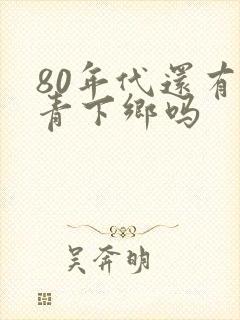 80年代還有
青下鄉吗
吴奔明